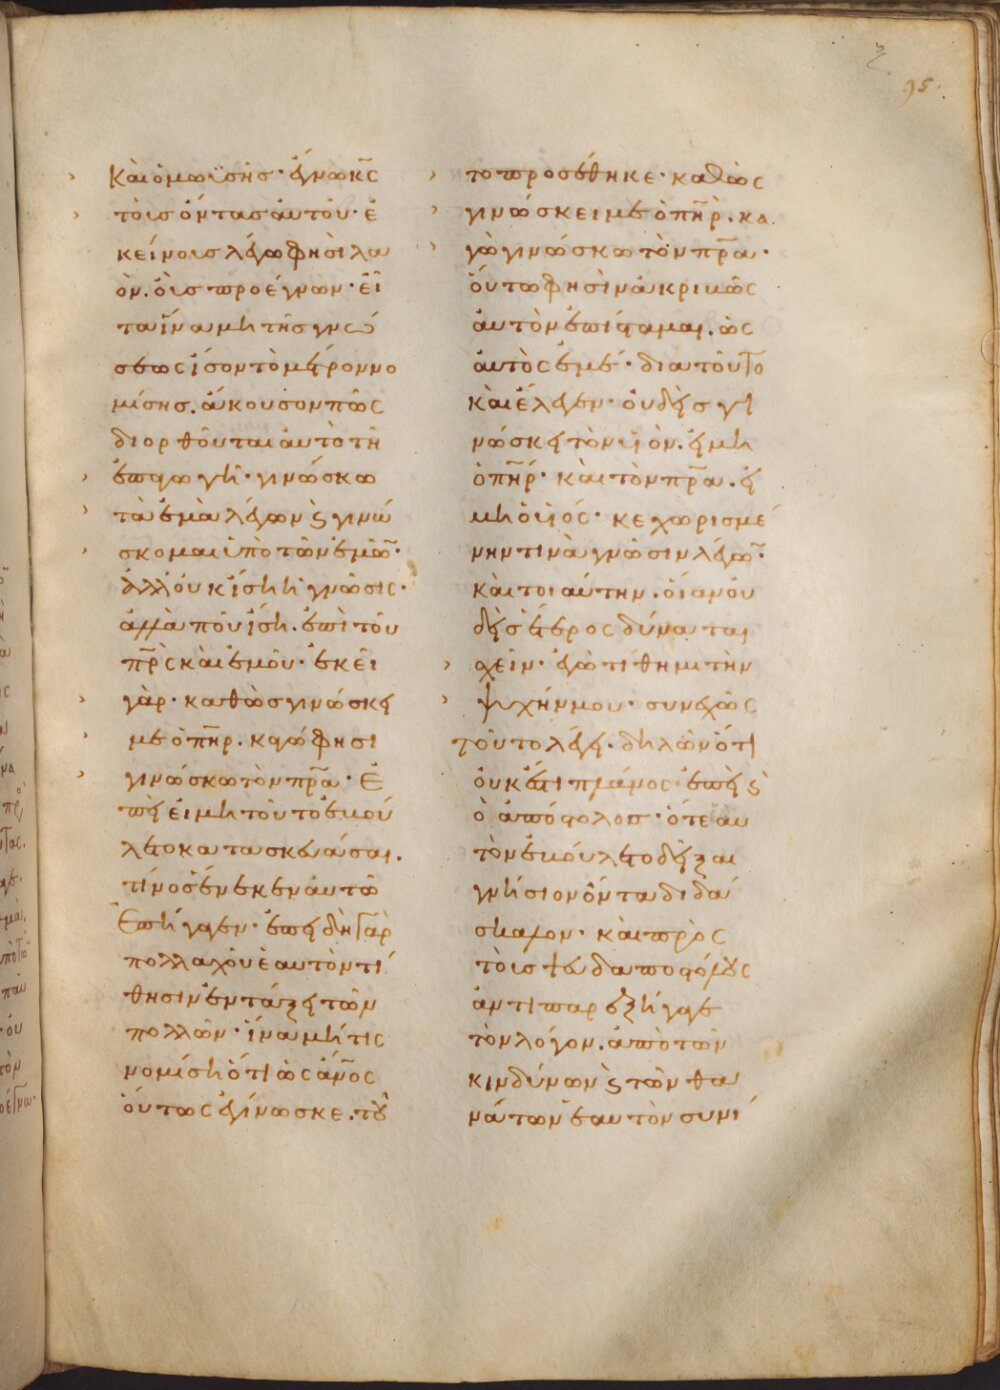 ξ
95.
Καὶ ὁ μωϋσῆσ· ἔγνω κ̅ς
τοὺσ ὄντασ αὐτοῦ· ἐ
κείνουσ λέγω φησὶ λα
όν. οὓσ προέγνων· εἶ
τα ἵνα μὴ τῆσ γνώ
σεως ἴσον τὸ μέτρον νο
μίσησ. ἄκουσον πῶς
διορθοῦται αὐτὸ τῆ
ἐπαγωγῆ· γινώσκω
τὰ ἐμὰ λέγων ϛ γινώ
σκομαι ὑπὸ τῶν ἐμῶ̅·
ἀλλ' οὐκ ἴση ἡ γνῶσις·
ἀλλὰ ποῦ ἴση. ἐπὶ τοῦ
π̅ρ̅ς καὶ ἐμοῦ· ἐκεῖ
γὰρ· καθὼσ γινώσκει
με ὁ π̅η̅ρ. καγώ φησι
γινώσκω τὸν π̅ρ̅α· Ἐ
πεὶ εἰ μὴ τοῦτο ἐμού
λετο κατασκευάσαι.
τίνοσ ἕνεκεν αὐτῶ
Ἐπήγαγεν· ἐπειδὴ γὰρ
πολλαχοῦ ἑαυτὸν τί
θησιν ἐν τάξει τῶν
πολλῶν· ἵνα μή τις
νομίση ὅτι ὡς ἄ̅ν̅ος
οὕτως ἐγίνωσκε. τοῦ
το προσέθηκε· καθὼς
γινώσκει με ὁ π̅η̅ρ. κα
γὼ γινώσκω τὸν π̅ρ̅α·
οὕτω φησὶν ἀκριβῶς
αὐτὸν ἐπίσταμαι. ὡς
αὐτὸς ἐμέ· διατοῦτο
καὶ ἔλεγεν· οὐδεὶσ γι
νώσκει τὸν υἱόν. εἰ μὴ
ὁ π̅η̅ρ· καὶ τὸν π̅ρ̅α. εἰ
μὴ ὁ υἱός· κεχωρισμέ
νην τινὰ γνῶσιν λέγω̅·
καὶ τοιαύτην. οἵαν οὐ
δεὶσ ἕτερος δύναται
σχεῖν· ἐγὼ τίθημι τὴν
ψυχήν μου· συνεχῶς
τοῦτο λέγει. δηλῶν ὅτι
οὐκ ἔστι πλάνος· ἐπεὶ ϛ
ὁ ἀπόστολοσ· ὅτε αυ
τὸν ἐμούλετο δεῖξαι
γνήσιον ὄντα διδά
σκαλον· καὶ πρὸς
τοὺσ ψευδαποστόλους
ἀντιπαρεξήγαγε
τὸν λόγον. ἀπὸ τῶν
κινδύνων ϛ τῶν θα
νάτων ἑαυτὸν συνί